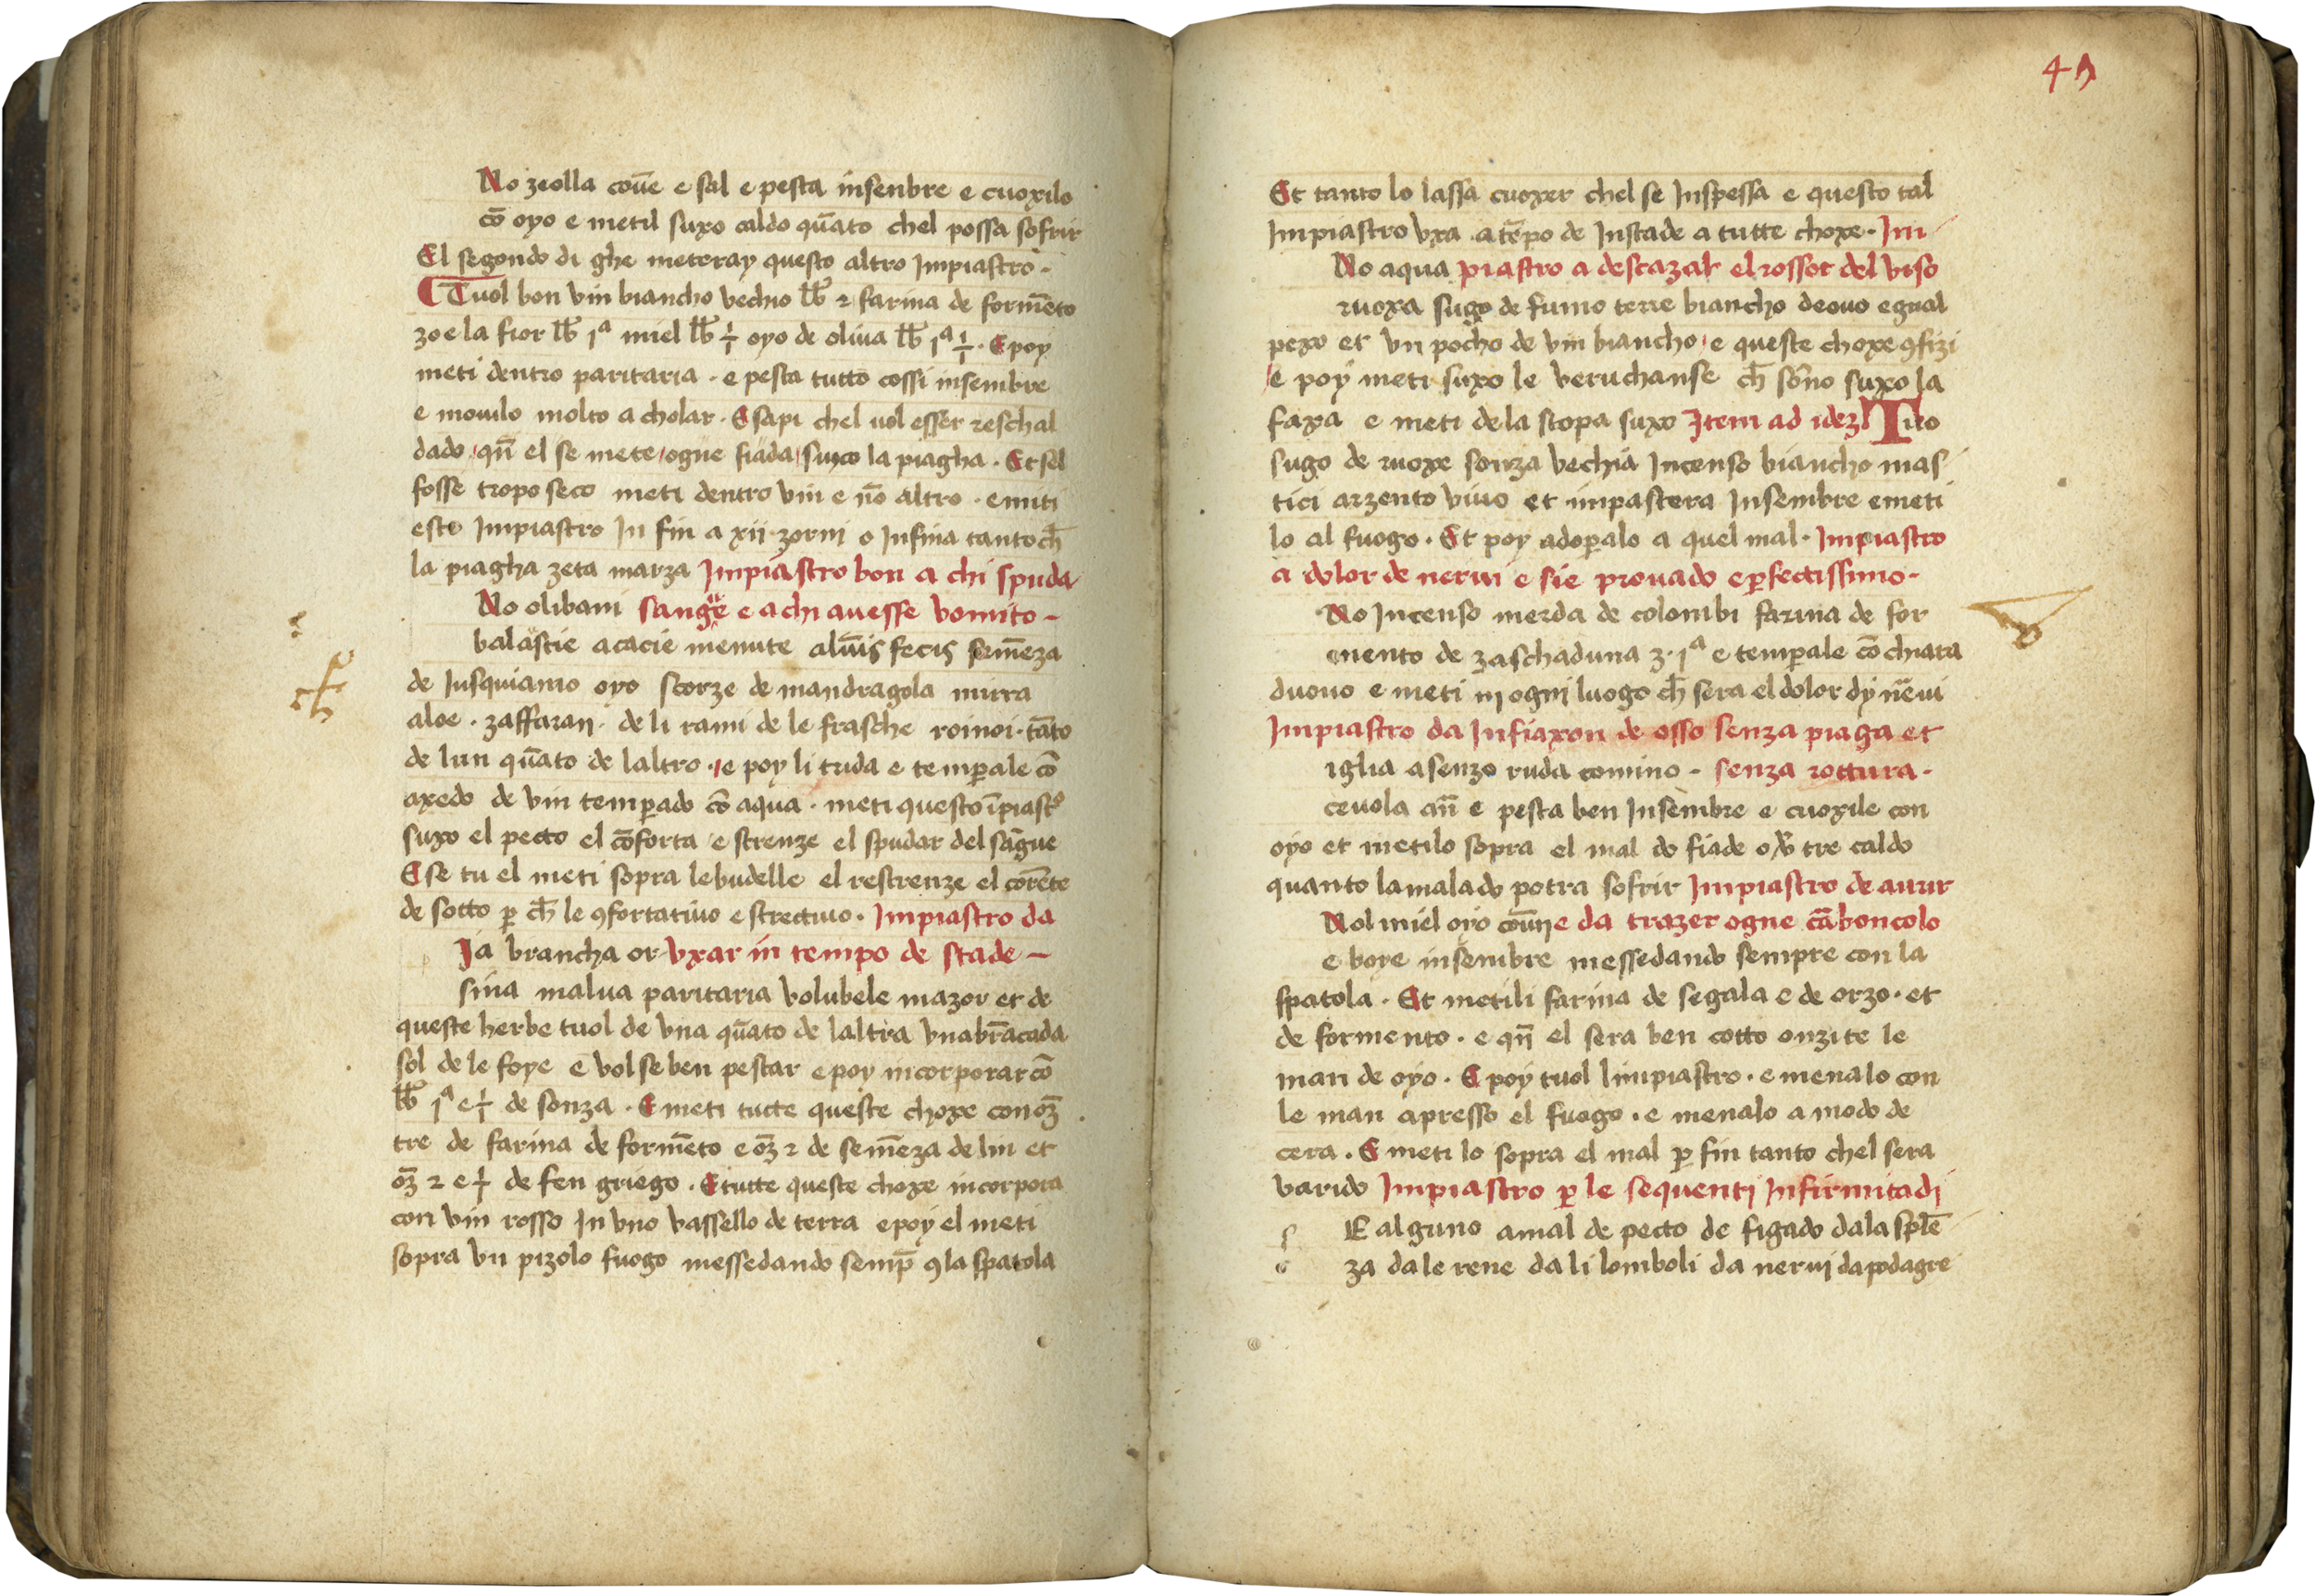 No zeolla cou̅e e sal e pesta insenbre e cuoxilo
co̅ oyo e metil suxo caldo qua̅to chel possa sofrir
El segondo di ghe meteray questo altro Impiastro -
Tuol bon vin biancho vechio lb̅ 2 farina de forme̅to
zoe la fior lb̅ 1ª miel lb̅ oyo de oliua lb̅ 1ª . E poy
meti dentro paritaria . e pesta tutto cossi insembre
e mouilo molto a cholar . E sapi chel uol esser reschal
dado / qn̅ el se mete / ogne fiada / suxo la piagha . Et sel
fosse tropo seco meti dentro vin e no̅ altro . e muti
esto Impiastro In fin a xii zorni o Infina tanto ch̅
la piagha zeta marza Impiastro bon a chi spuda
No olibani sangue e a chi auesse vomito -
balastie acacie menute feci seme̅za
de Iusquiamo oyo scorze de mandragola mirra
aloe . zaffaran . de li rami de le frasche roinoi . ta̅to
de lun qua̅to de laltro . / e poy li trida e temp̲ale co̅
axedo de vin temp̲ado co̅ aqua . meti questo i̅piast°
suxo el pecto el co̅forta e strenze el spudar del sa̅gue
E se tu el meti sopra le budelle el restrenze el core̅te
de sotto p̲ ch̅ le ꝯfortatiuo e strectiuo . Impiastro da
Ia brancha or vxar in tempo de stade -
sina malua paritaria volubele mazor et de
queste herbe tuol de vna qua̅to de laltra vna bra̅cada
sol de le foye e vol se ben pestar e poy incorporar co̅
lb̅ 1ª e de sonza . E meti tutte queste choxe con oz̅
tre de farina de forme̅to e oz̅ 2 de seme̅za de lin et
oz̅ 2 e de fen griego . E tutte queste choxe incorpora
con vin rosso In vno vassello de terra e poy el meti
sopra vn pizolo fuogo messedando semp̲ ꝯ la spatola
Et tanto lo lassa cuoxer chel se Inspessa e questo tal
Impiastro vxa a te̅po de Instade a tutte choxe . Im
No aqua piastro a descazar el rossor del viso
ruoxa sugo de fumo terre biancho de ouo egual
pexo et vn pocho de vin biancho / e queste choxe ꝯfizi
/ e poy meti suxo le veruchanse ch̅ so̅no suxo la
faxa e meti de la stopa suxo Item ad idez Tuo
sugo de ruoxe sonza vechia Incenso biancho mas
tici arzento viuo et impastera Insembre e meti
lo al fuogo . Et poy adop̲alo a quel mal . Impiastro
a dolor de nerui e sie prouado e p̲fectissimo .
No Incenso merda de colombi farina de for
mento de zaschaduna ʒ . 1ª e temp̲ale co̅ chiara
duouo e meti in ogni luogo ch̅ sera el dolor dy ne̅ui
Impiastro da Infiaxon de osso senza piaga et
iglia asenzo ruda comino . senza rottura .
ceuola an̅ e pesta ben Insembre e cuoxile con
oyo et metilo sopra el mal do fiade tre caldo
quanto lamalado potra sofrir Impiastro de aurir
Nol miel oyo cou̅ne da trazer ogne ca̅boncolo
e boye insembre messedando sempre con la
spatola . Et metili farina de segala e de orzo . et
de formento . e qn̅ el sera ben cotto onzite le
man de oyo . E poy tuol limpiastro . e menalo con
le man apresso el fuogo . e menalo a modo de
cera . E meti lo sopra el mal p̲ fin tanto chel sera
varido Impiastro p̲ le sequenti Infirmitadi
s E alguno a mal de pecto de figado da la sple̅
za da le rene da li lomboli da nerui da podagre